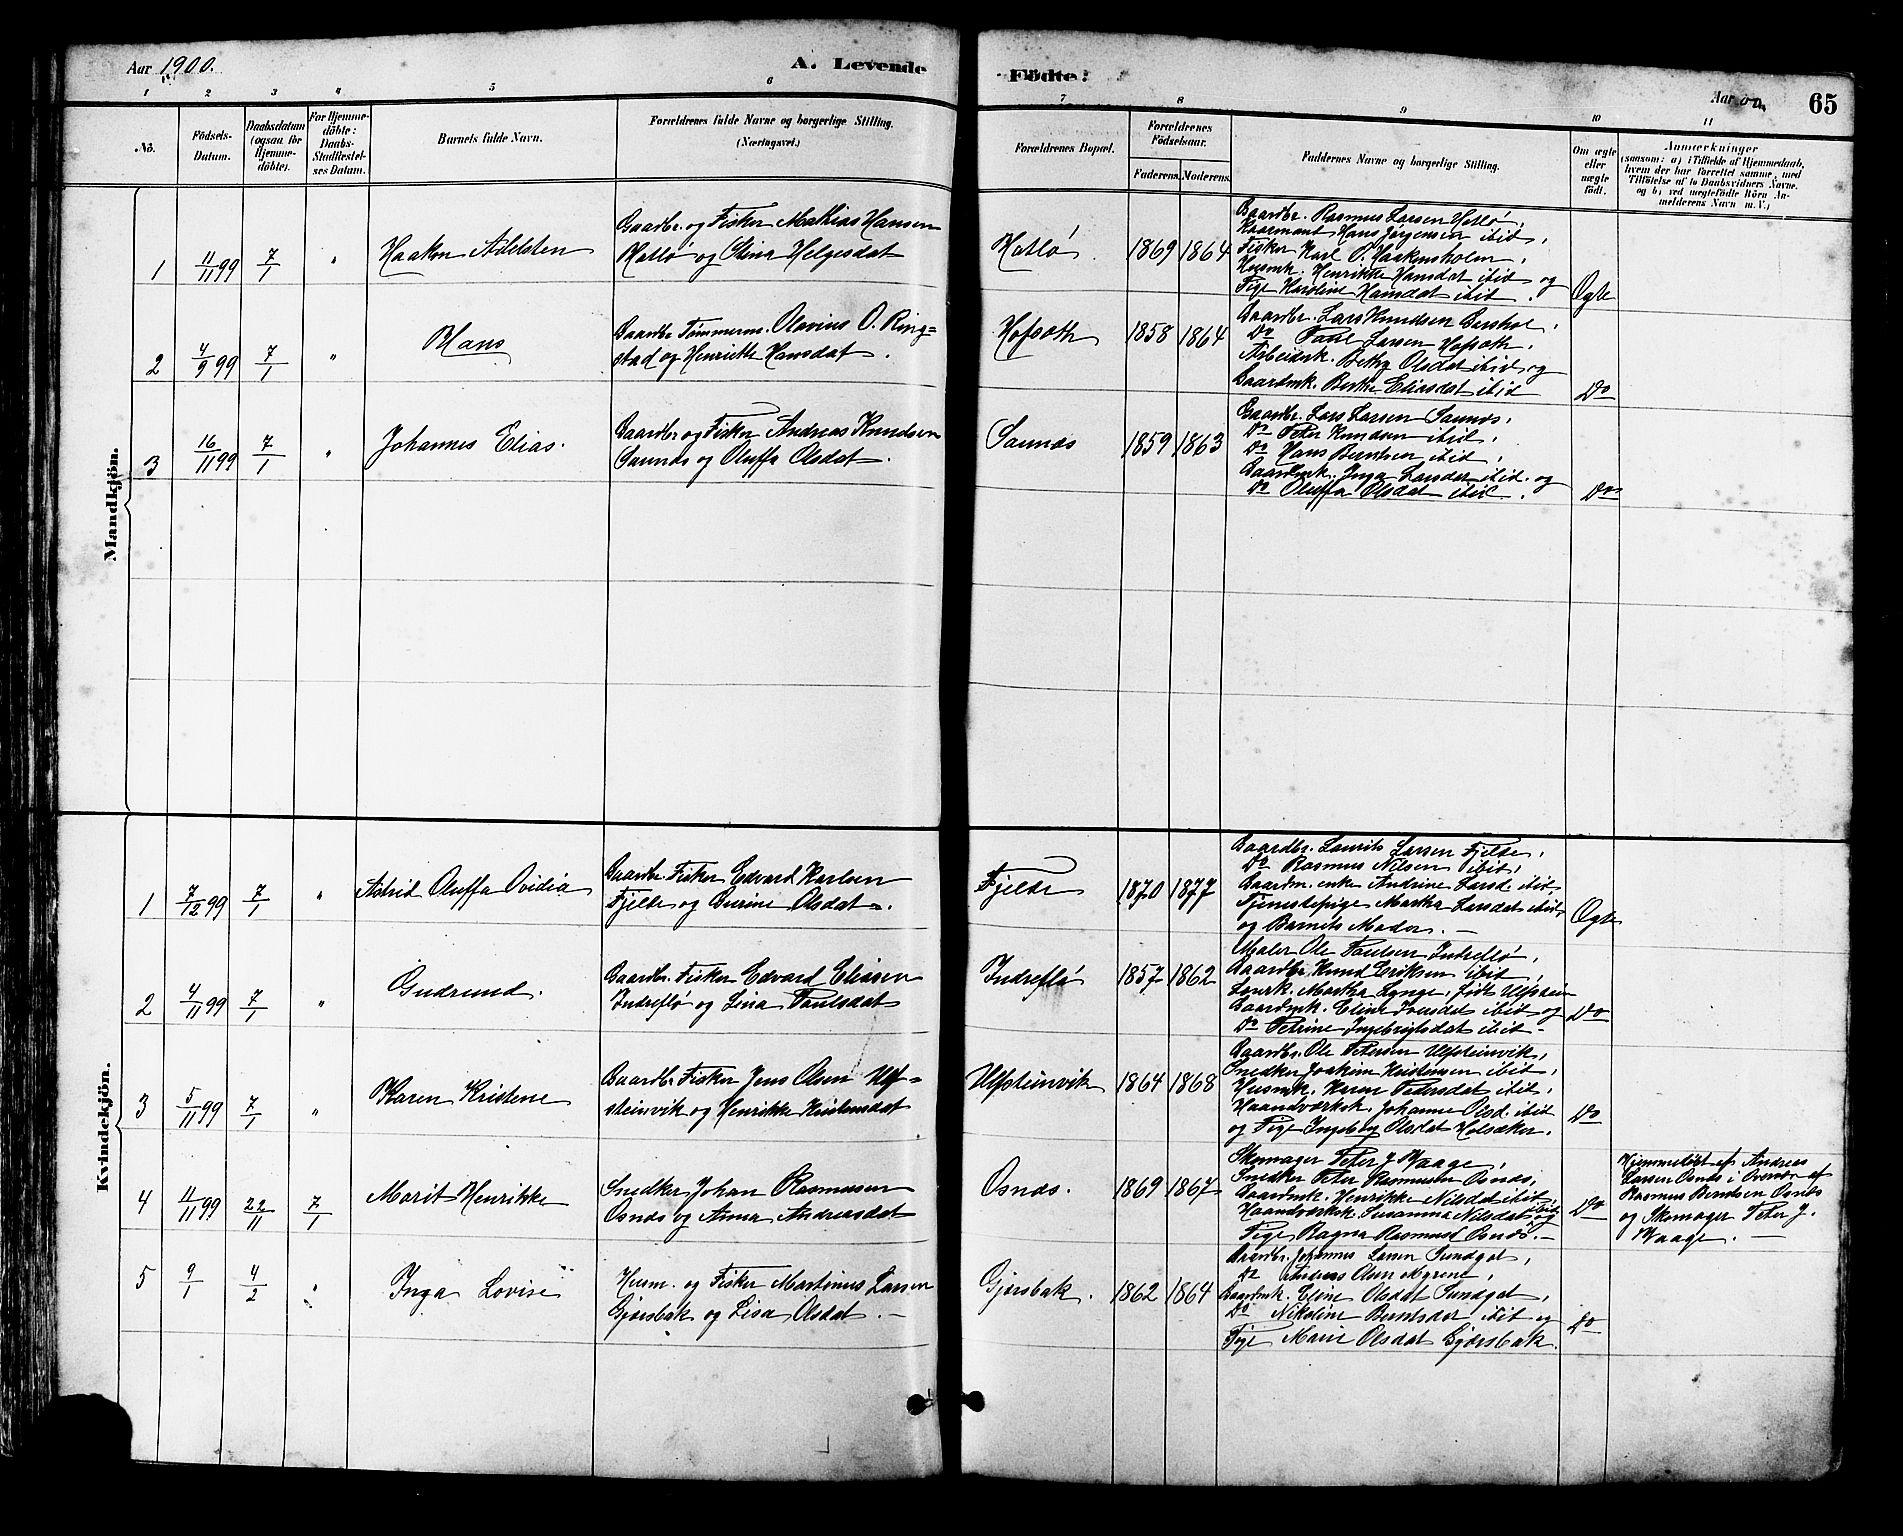 Aar 1900.
A. Levende
Födte:
Aar 00.
65
1 2 3 4 5 6 7 8 9 10 11
No.
Födsels-
Datum.
Daabsdatum
(ogsaa for
Hjemme-
döbte).
For Hjemme-
döbte:
Daabs-
Stadfæstel-
ses Datum.
Barnets fulde Navn.
Forældrenes fulde Navne og borgerlige Stilling.
(Næringsvei.)
Forældrenes Bopæl.
Forældrenes
Födselsaar.
Faderens. Moderens.
Faddernes Navne og borgerlige Stilling.
Om ægte
eller
uægte
födt.
Anmærkninger
(saasom: a) i Tilfælde af Hjemmedaab,
hvem der har forrettet samme, med
Tilföielse af to Daabsvidners Navne.
og b) ved uægtefödte Börn An-
melderens Navn m. V.)
Mandkjön.
1
11/11 99
7/1
"
Haakon Adelsten
Gaardbr. og Fisker Mathias Hansen
Hatlø og Stina Helgesdat
Hatlø
1869
1864
Gaardbr. Rasmus Larsen Hatlø,
Kaarmant Hans Jørgensen ibid,
Fisker Karl O. Haakensholm,
Husmk. Henrikke Hansdat ibid og
Pige Karoline Hansdat ibid.
Ægte
2
4/9 99
7/1
"
Hans
Gaardbr Tømmerm. Olavius O. Ring-
stad og Henrikke Hansdat.
Hofsøth
1858
1864
Gaardbr. Lars Knudsen
Do Paul Larsen Hofsøth,
Arbeidsk. Bethy Olsdat ibid og
Gaardmk. Berthe Eliasdat ibid
Do
3
16/11 99
7/1
"
Johannes Elias.
Gaardbr og Fisker Andreas Knudsen
Saunæs og Oluffa Olsdat.
Saunæs
1859
1863
Gaardbr. Lars Larsen Saunæs,
Do Peter Knudsen ibid,
Do Hans Berntsen ibid,
Gaardmk. Inga Larsdat ibid. og
Do Oluffa Olsdat ibid.
Do
Kvindekjön.
1
7/12 99
7/1
"
Astrid Oluffa Ovidia
Gaardbr. Fisker Edvard Karlsen
Fjelde og Olsdat.
Fjelde
1870
1877
Gaardbr. Laurits Larsen Fjelde,
Do Rasmus Nilsen ibid,
Gaardm. enke Andrine Larsd. ibid
Tjenestepige Martha Larsdat ibid,
og Barnets Moder.
Ægte
2
4/11 99
7/1
"
Gudrund.
Gaardbr. Fisker Edvard Eliasen
Indreflø og Lina Paulsdat
Indreflø
1857
1862
Maler Ole Paulsen Indreflø,
Gaardbr. Knud Eriksen ibid,
Martha Lynge, født Ulfstein
Gaardmk. Eline Iversdat ibid og
Do Petrine Ingebrigtsdat ibid
Do
3
5/11 99
7/1
"
Karen Kristine
Gaardbr Fisker Jens Olsen Ulf-
steinvik og Henrikke Kristensdat
Ulfsteinvik
1864
1868
Gaardbr. Ole Petersen Ulfsteinvik,
Snedker Joakim Kristensen ibid,
Husmk. Karen Pedersdat ibid,
Haandværksk. Johanne Olsd. ibid
og Pige Ingeborg Olsdat Holsæker.
Do
4
11/11 99
22/11
7/1
Marit Henrikke
Snedker Johan Rasmussen
Osnæs og Anna Andersdat
Osnæs.
1869
1867
Skomager Peter J Waage,
Snedker Peter Rasmussen Osnæs,
Gaardmk. Henrikke Nilsdat ibid,
Haandværksk. Susanna Nilsdat ibid og
Pige Ragna Rasmusd Osnæs.
Do
Hjemmedøbt af Andreas
Larsen Osnæs i Overvær af
Rasmus Berntsen Osnæs
og Skomager Peter J.
Waage.
5
9/1
4/2
"
Inga Lovise
Husm. og Fisker Martinus Larsen
Gjørsbak og Lisa Olsdat.
Gjørsbak.
1862
1864
Gaardbr. Johannes Larsen Sundgot,
Do Andreas Olsen Myrene,
Gaardmk. Eline Olsdat Sundgot,
Do Nikoline Berntsdat ibid og
Pige Marie Olsdat Gjørsbak.
Do